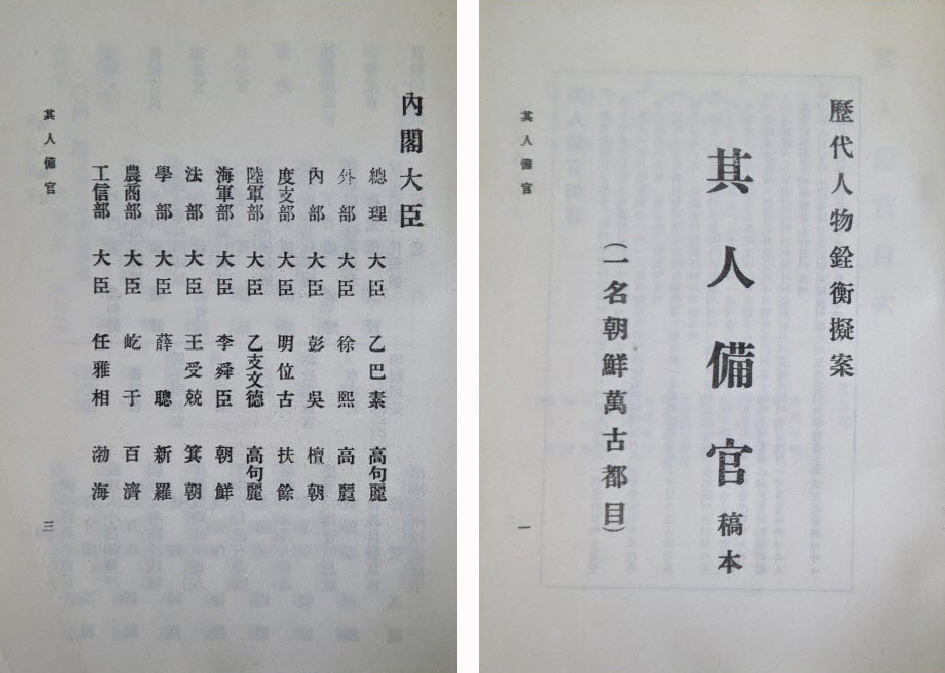 歷代人物銓衡擬案
其人備官 稿本
(一名朝鮮萬古都目)
其人備官
一
內閣大臣
總理大臣 乙巴素 高句麗
外部大臣 徐熙 高麗
內部大臣 彭吳 檀朝
度支部大臣 明位古 扶餘
陸軍部大臣 乙支文德 高句麗
海軍部大臣 李舜臣 朝鮮
法部大臣 王受兢 箕朝
學部大臣 薛聰 新羅
農商部大臣 屹于 百濟
工信部大臣 任雅相 渤海
其人備官
三